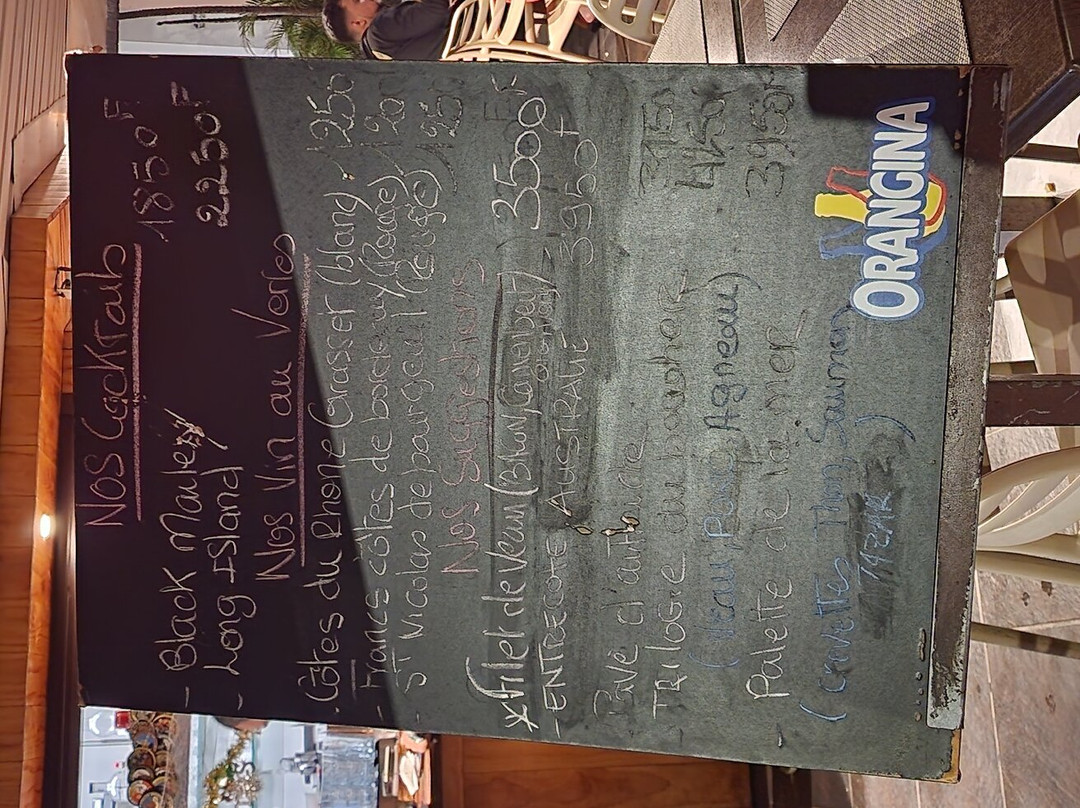 Nos Cocktails
- Black 1850 F
- Long Island 2250 F
Nos Vin au Verres
- Côtes du Rhone Grasser (blanc) 1250
- Francs côtes de bordeaux (Rouge) 120
- ST Nicolas de bourgeuil (Rouge) 125
Nos Suggestions
* Filet de veau (Bleu/Camenbert) 3500 F
- ENTRECOTE AUSTRALIE 3950 F
Pavé d'autruche 315
TRILOGIE du 4450
(Veau, Porc, Agneau)
- Palette de la mer 3950
(crevettes, Thon, Saumon
)
ORANGINA